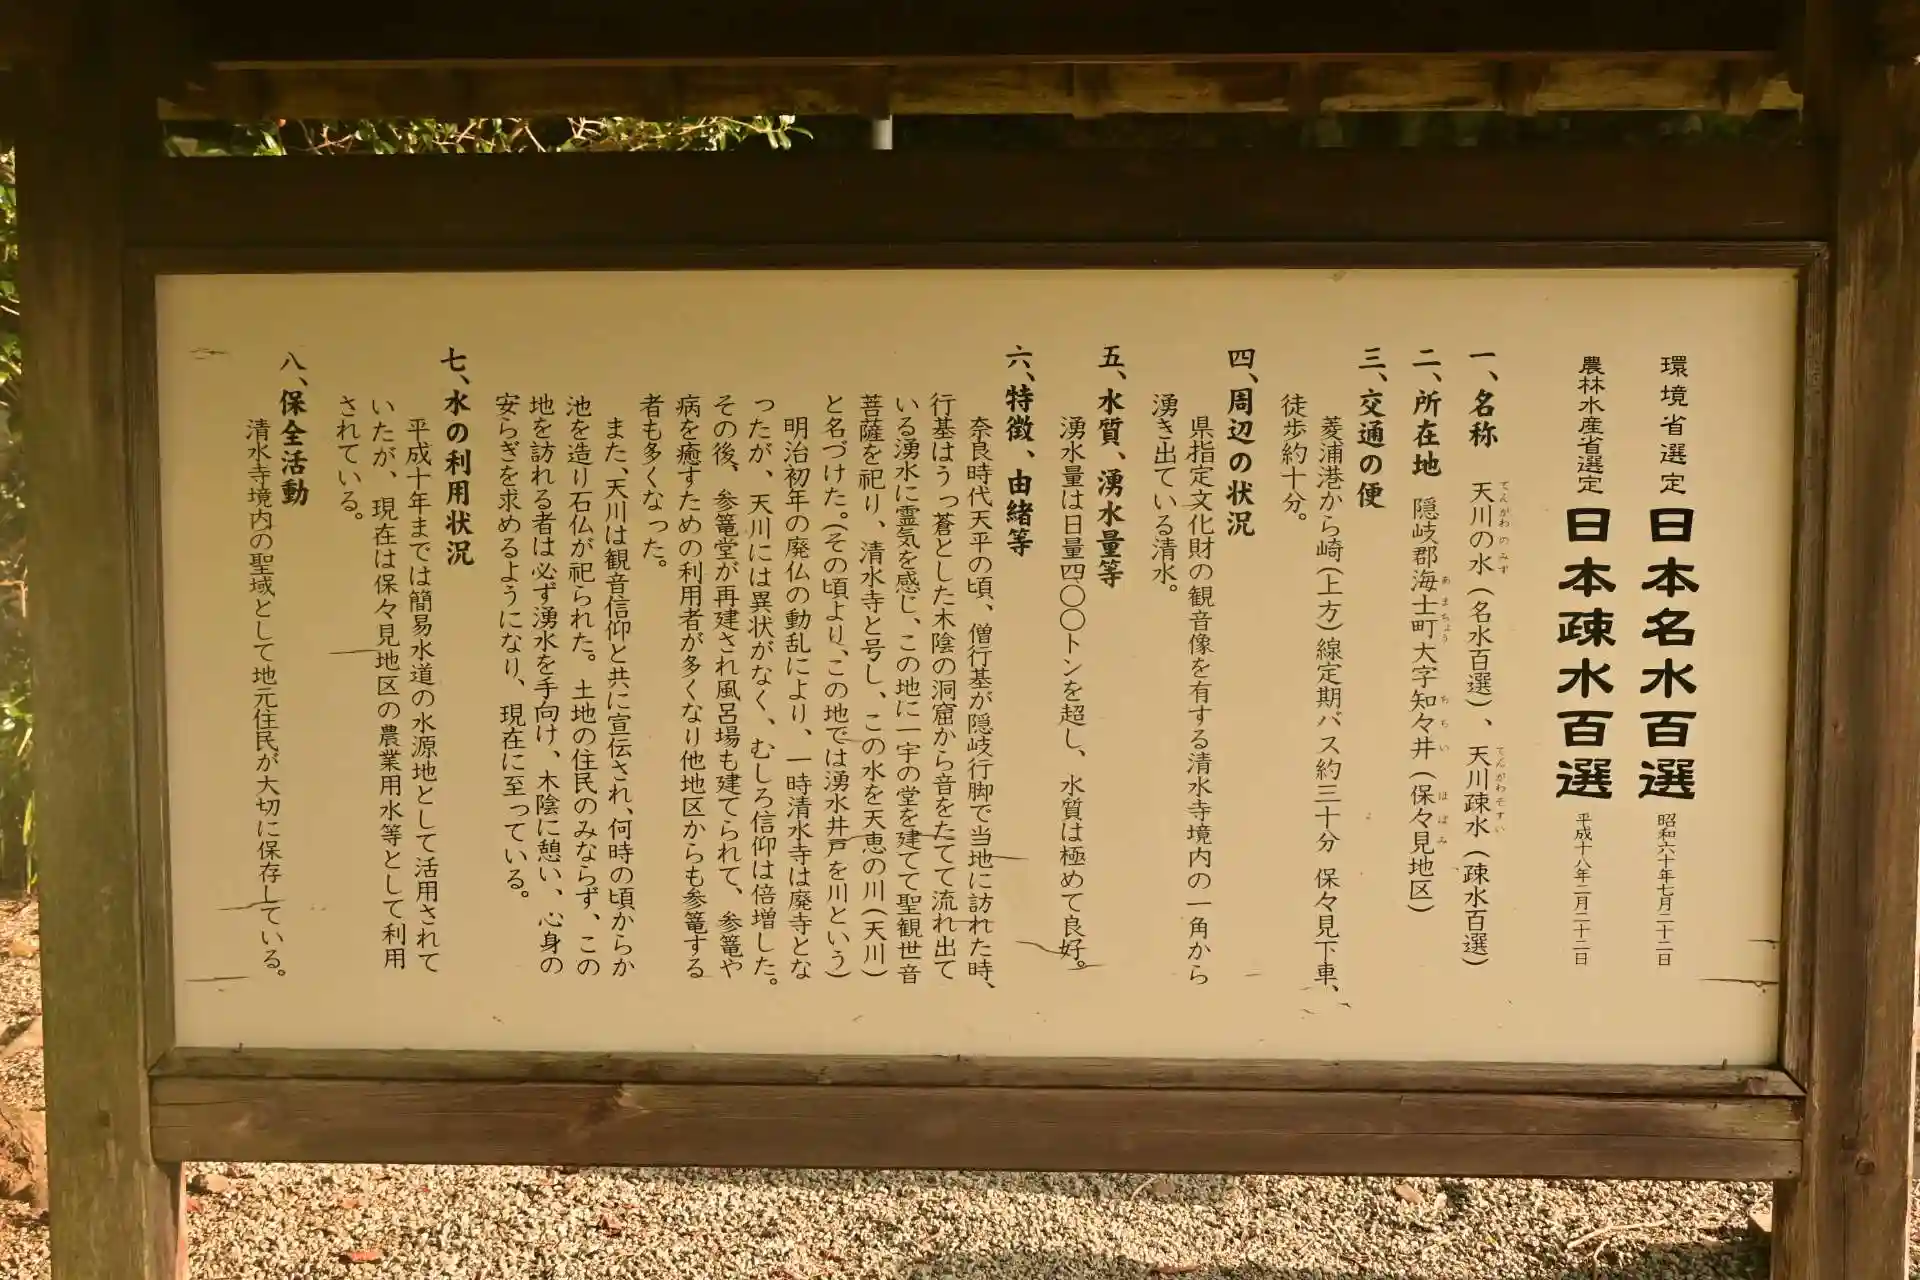 環境省選定 日本名水百選 昭和六十年七月二十二日
農林水産省選定 日本疎水百選 平成十八年二月二十二日
一、名称 天川の水（名水百選）、天川疎水（疎水百選）
てんがわのみず てんがわそすい
二、所在地 隠岐郡海士町大字知々井（保々見地区）
あまちょう ちちい ほぼみ
三、交通の便
菱浦港から崎（上方）線定期バス約三十分 保々見下車、
徒歩約十分。
四、周辺の状況
県指定文化財の観音像を有する清水寺境内の一角から
湧き出ている清水。
五、水質、湧水量等
湧水量は日量四〇〇トンを超し、水質は極めて良好。
六、特徴、由緒等
奈良時代天平の頃、僧行基が隠岐行脚で当地に訪れた時、
行基はうっ蒼とした木陰の洞窟から音をたてて流れ出て
いる湧水に霊気を感じ、この地に一宇の堂を建てて聖観世音
菩薩を祀り、清水寺と号し、この水を天恵の川（天川）
と名づけた。（その頃より、この地では湧水井戸を川という）
明治初年の廃仏の動乱により、一時清水寺は廃寺とな
ったが、天川には異状がなく、むしろ信仰は倍増した。
その後、参篭堂が再建され風呂場も建てられて、参篭や
病を癒すための利用者が多くなり他地区からも参篭する
者も多くなった。
また、天川は観音信仰と共に宣伝され、何時の頃からか
池を造り石仏が祀られた。土地の住民のみならず、この
地を訪れる者は必ず湧水を手向け、木陰に憩い、心身の
安らぎを求めるようになり、現在に至っている。
七、水の利用状況
平成十年までは簡易水道の水源地として活用されて
いたが、現在は保々見地区の農業用水等として利用
されている。
八、保全活動
清水寺境内の聖域として地元住民が大切に保存している。